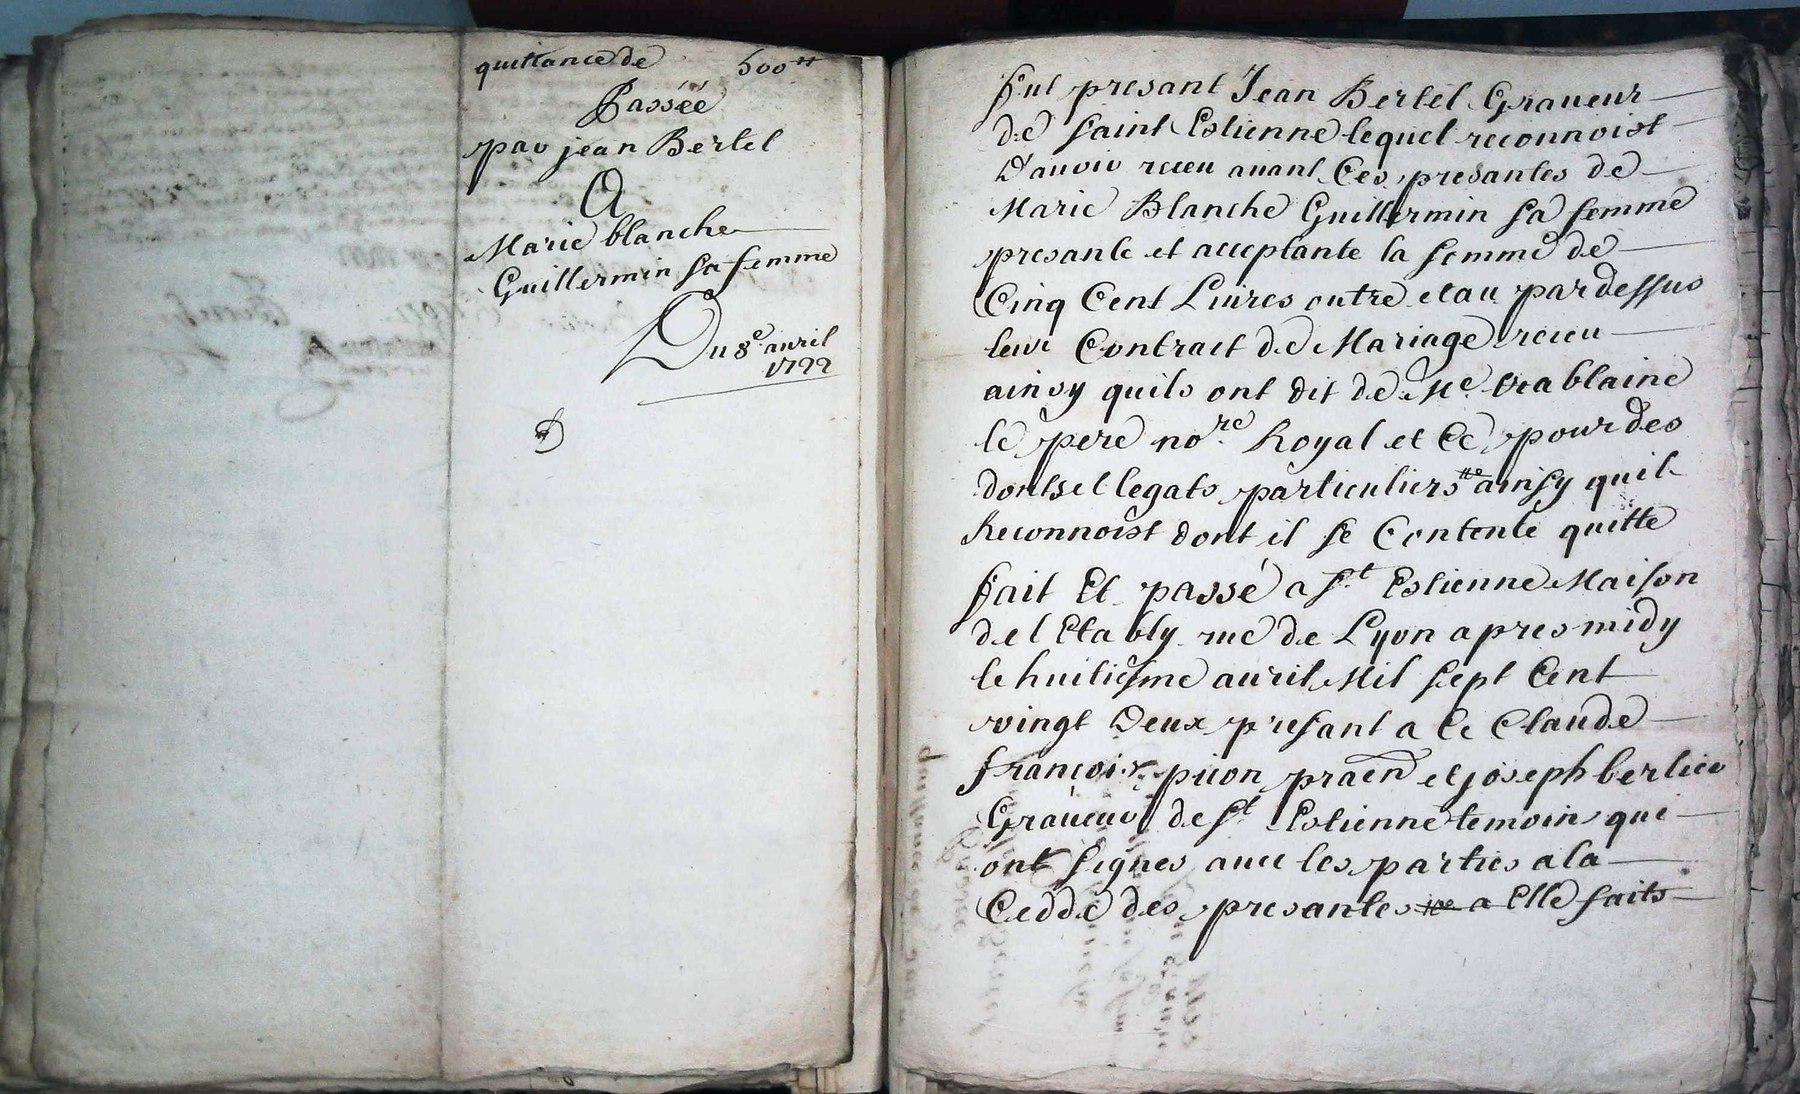 quittance de 500 tt
Passée
par jean Bertel
A
Marie blanche
Guillermin sa femme
Du 8e avril
1722
fut presant Jean Bertel Graueur
de saint Estienne lequel reconnoist
D'auoir receu auant Ces presantes de
Marie Blanche Guillermin sa femme
presante et acceptante la somme de
Cinq Cent Liures outre et au pardessus
leur Contract de Mariage receu
ainsy quils ont dit de Me trablaine
le pere nore Royal et Ce pour des
donts et legats particuliers ainsy quil
Reconnoist dont il se Contente quitte
fait Et passé a St Estienne Maison
del Etably rue de Lyon apres midy
le huitiesme auril Mil sept Cent
vingt Deux presant a Ce Claude
françois picon praen et joseph berlier
Graueur de St Estienne temoin qui
ont signes auec les parties a la
Cedde des presantes a Elle faits